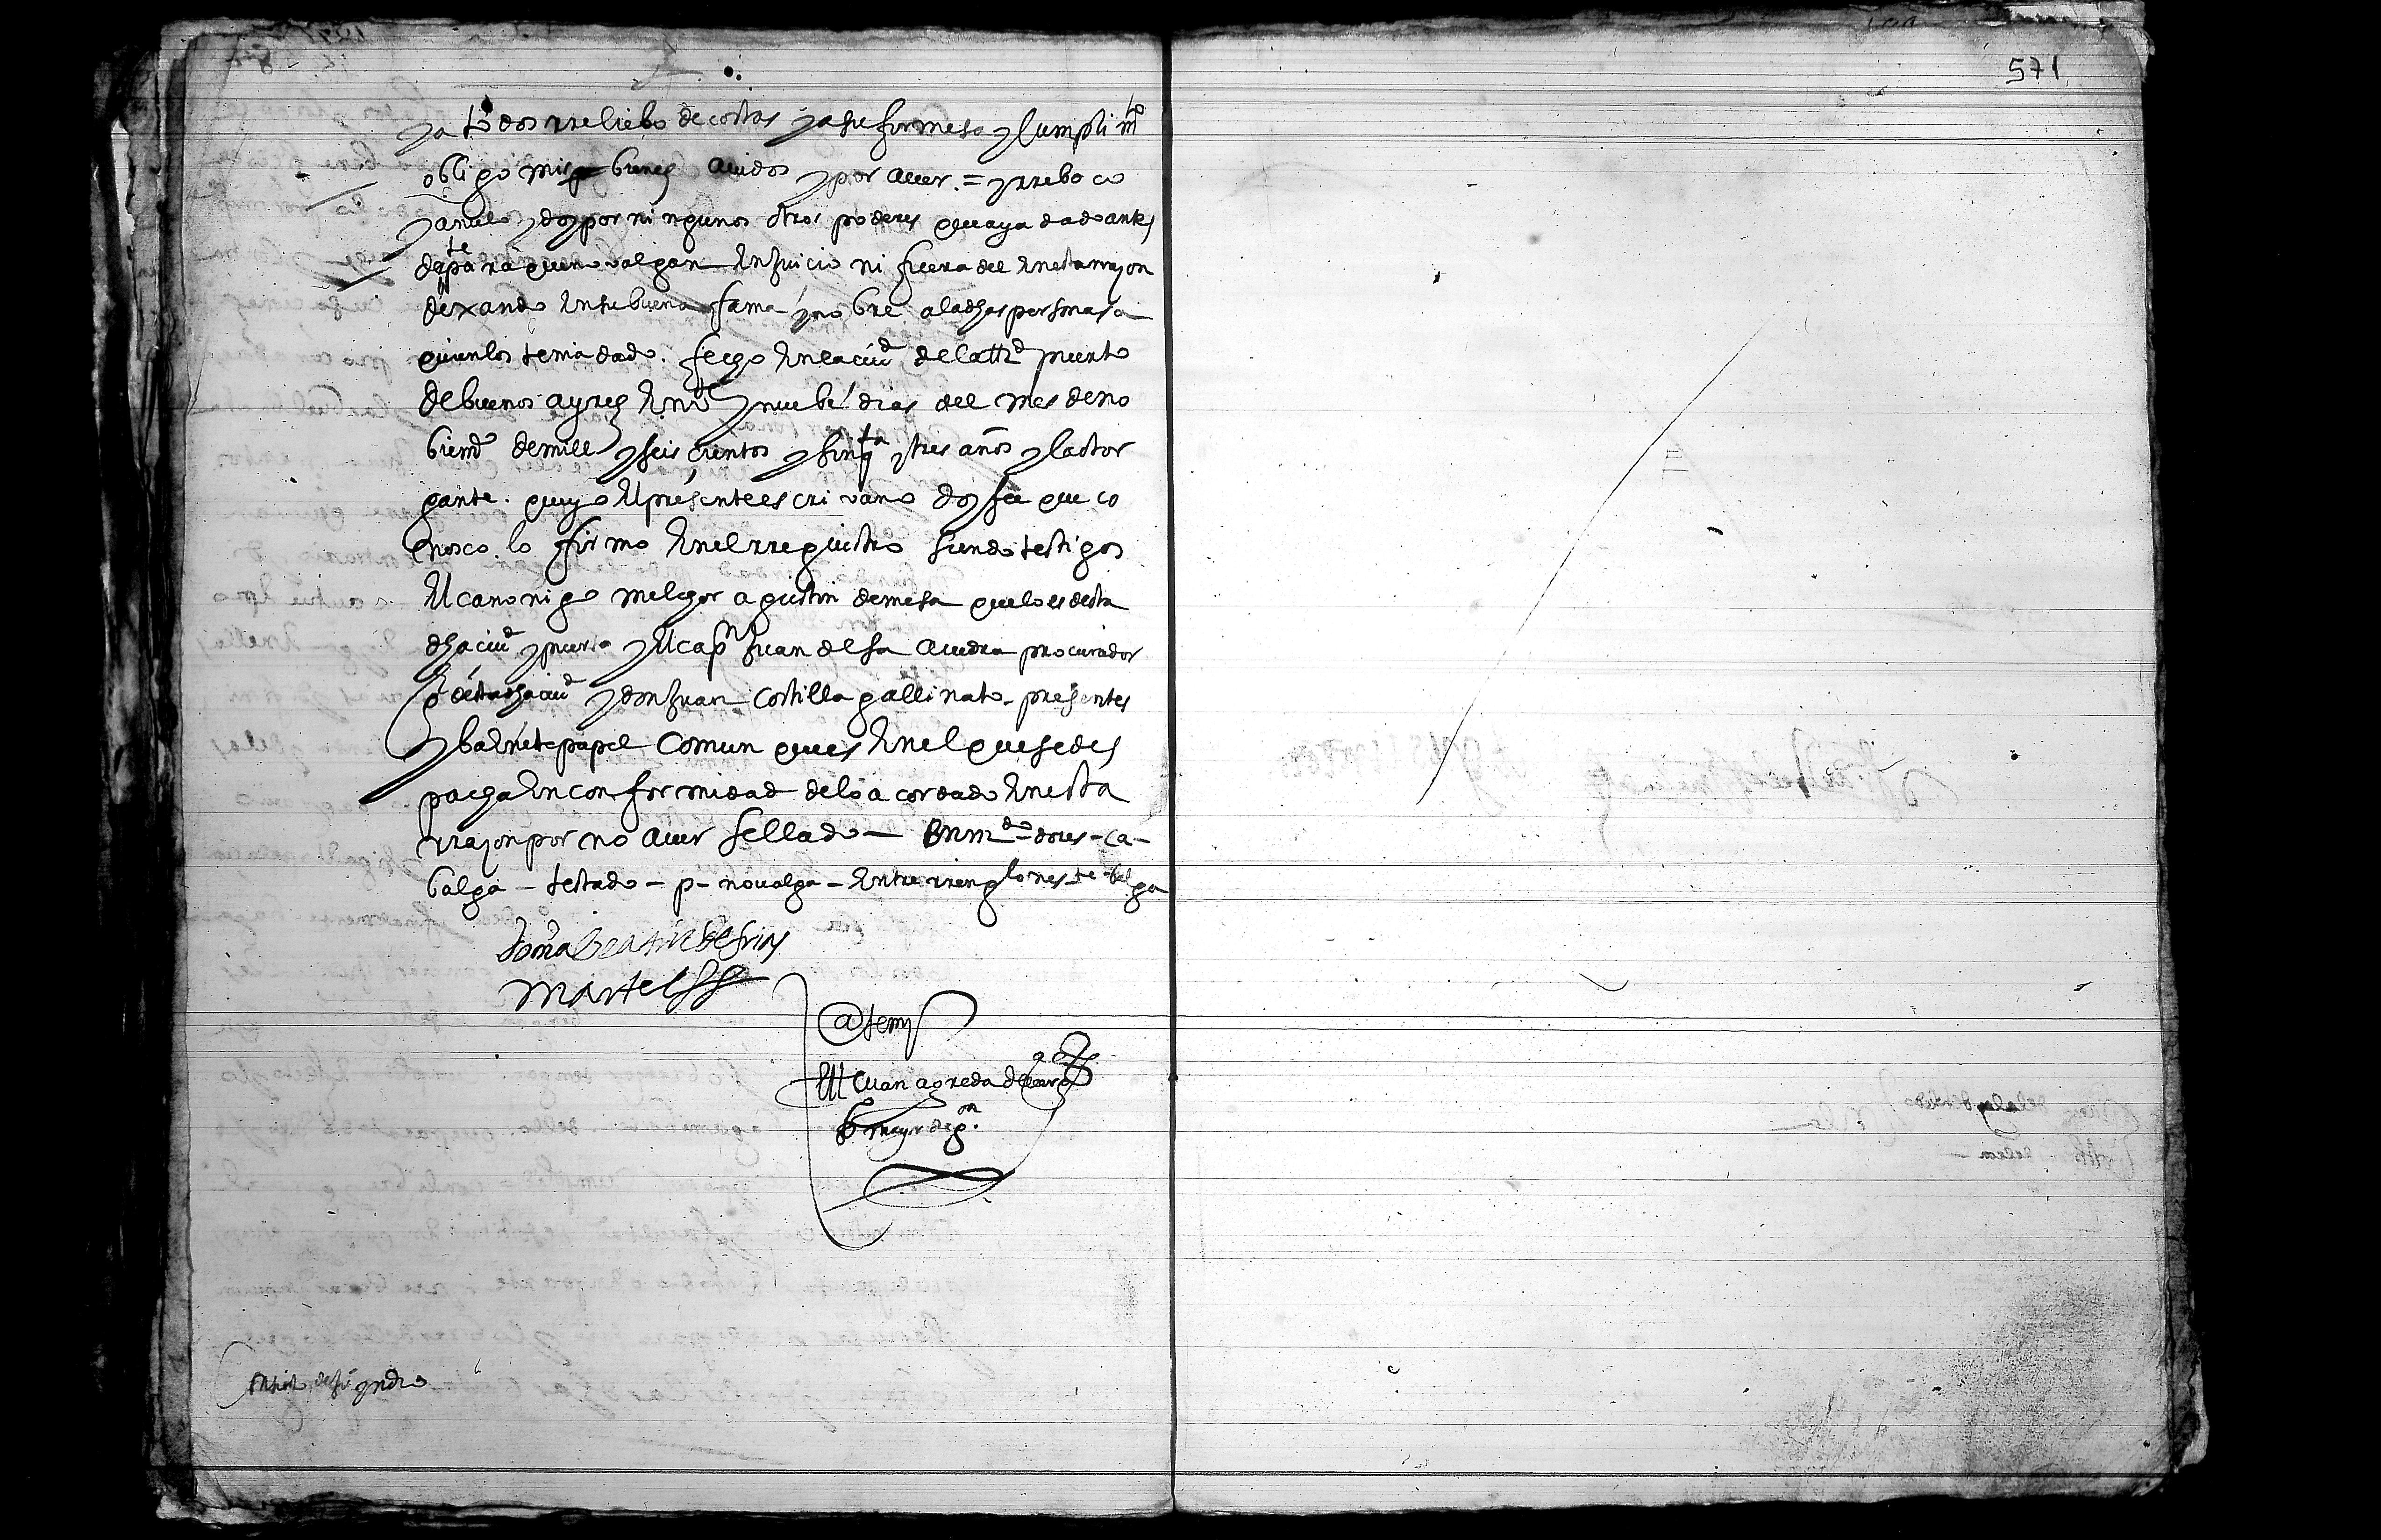 571
ya todos rreliebo de costas y a su firmesa y cumplimto
obligo mis bienes auidos y por auer = y rreboco
y anulo y doy por ningunos otros poderes que aya dado antes
deste para que no valgan en juicio ni fuera del en esta rrason
dexando en su buena fama y nobre a las dhas personas a
quien los tenia dado. fecho en la ciud de la ttrd puerto
de buenos ayres en dies y nuebe dias del mes de no
biembre de mill y seis cientos y sinqta y tres años y la otor
gante. que yo el presente escrivano doy fee que co
nosco lo firmo en el rregistro siendo testigos
el canonigo melchor agustin de mesa que lo es desta
dha ciud y puerto y el capn juan de saauedra procurador
gl desta dha ciud y don juan costilla gallinato - presentes
y ba en este papel comun que es en el que se des
pacha en conformidad de lo acordado en esta
rrason por no auer sellado - enmdo - dores - ca -
balga - testado - p - no valga - entre rrenglones - te - balga
doña beatris de frias
martel
ante mi
juan agreda de vergara
ssno mayor de gon